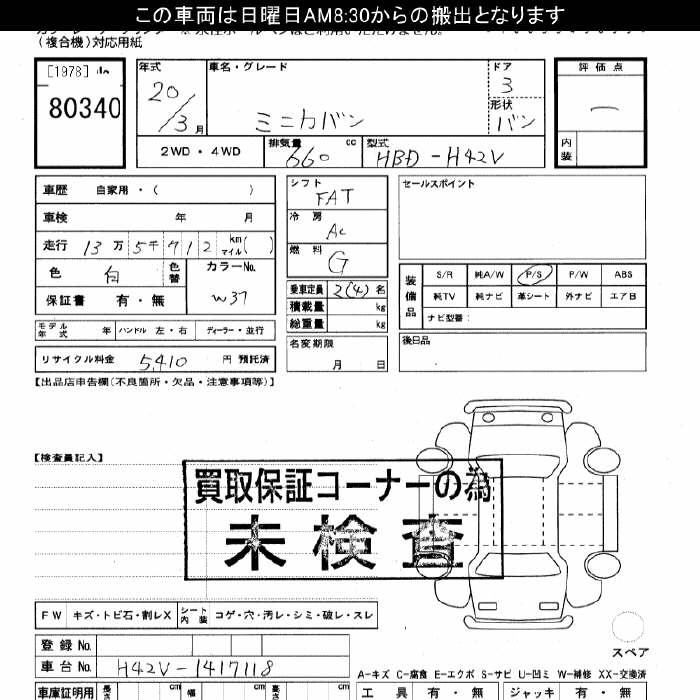 この車両は日曜日AM8:30からの搬出となります
(複合機)対応用紙
[1978]
80340
年式 20/3月
車名・グレード ミニカバン
ドア 3
形状 バン
評価点 —
内装
2WD・4WD
排気量 660 cc
型式 HBD-H42V
車歴 自家用・( )
車検 年 月
走行 13万5千912 km マイル( )
色 白 色替 カラーNo. W37
保証書 有・無
モデル年式 年 ハンドル 左・右 ディーラー・並行
リサイクル料金 5,410 円 預託済
シフト FAT
冷房 AC
燃料 G
乗車定員 2(4) 名
積載量 kg
総重量 kg
名変期限 月 日
セールスポイント
装備品
S/R 純A/W P/S P/W ABS
純TV 純ナビ 革シート 外ナビ エアB
ナビ型番:
後日品
【出品店申告欄(不良箇所・欠品・注意事項等)】
【検査員記入】
買取保証コーナーの為
未検査
FW キズ・トビ石・割レX シート内装 コゲ・穴・汚レ・シミ・破レ・スレ
登録No.
車台No. H42V-1417118
スペア
A-キズ C-腐食 E-エクボ S-サビ U-凹ミ W-補修 XX-交換済
車庫証明用 長さ cm 幅 cm 高さ cm
工具 有・無 ジャッキ 有・無